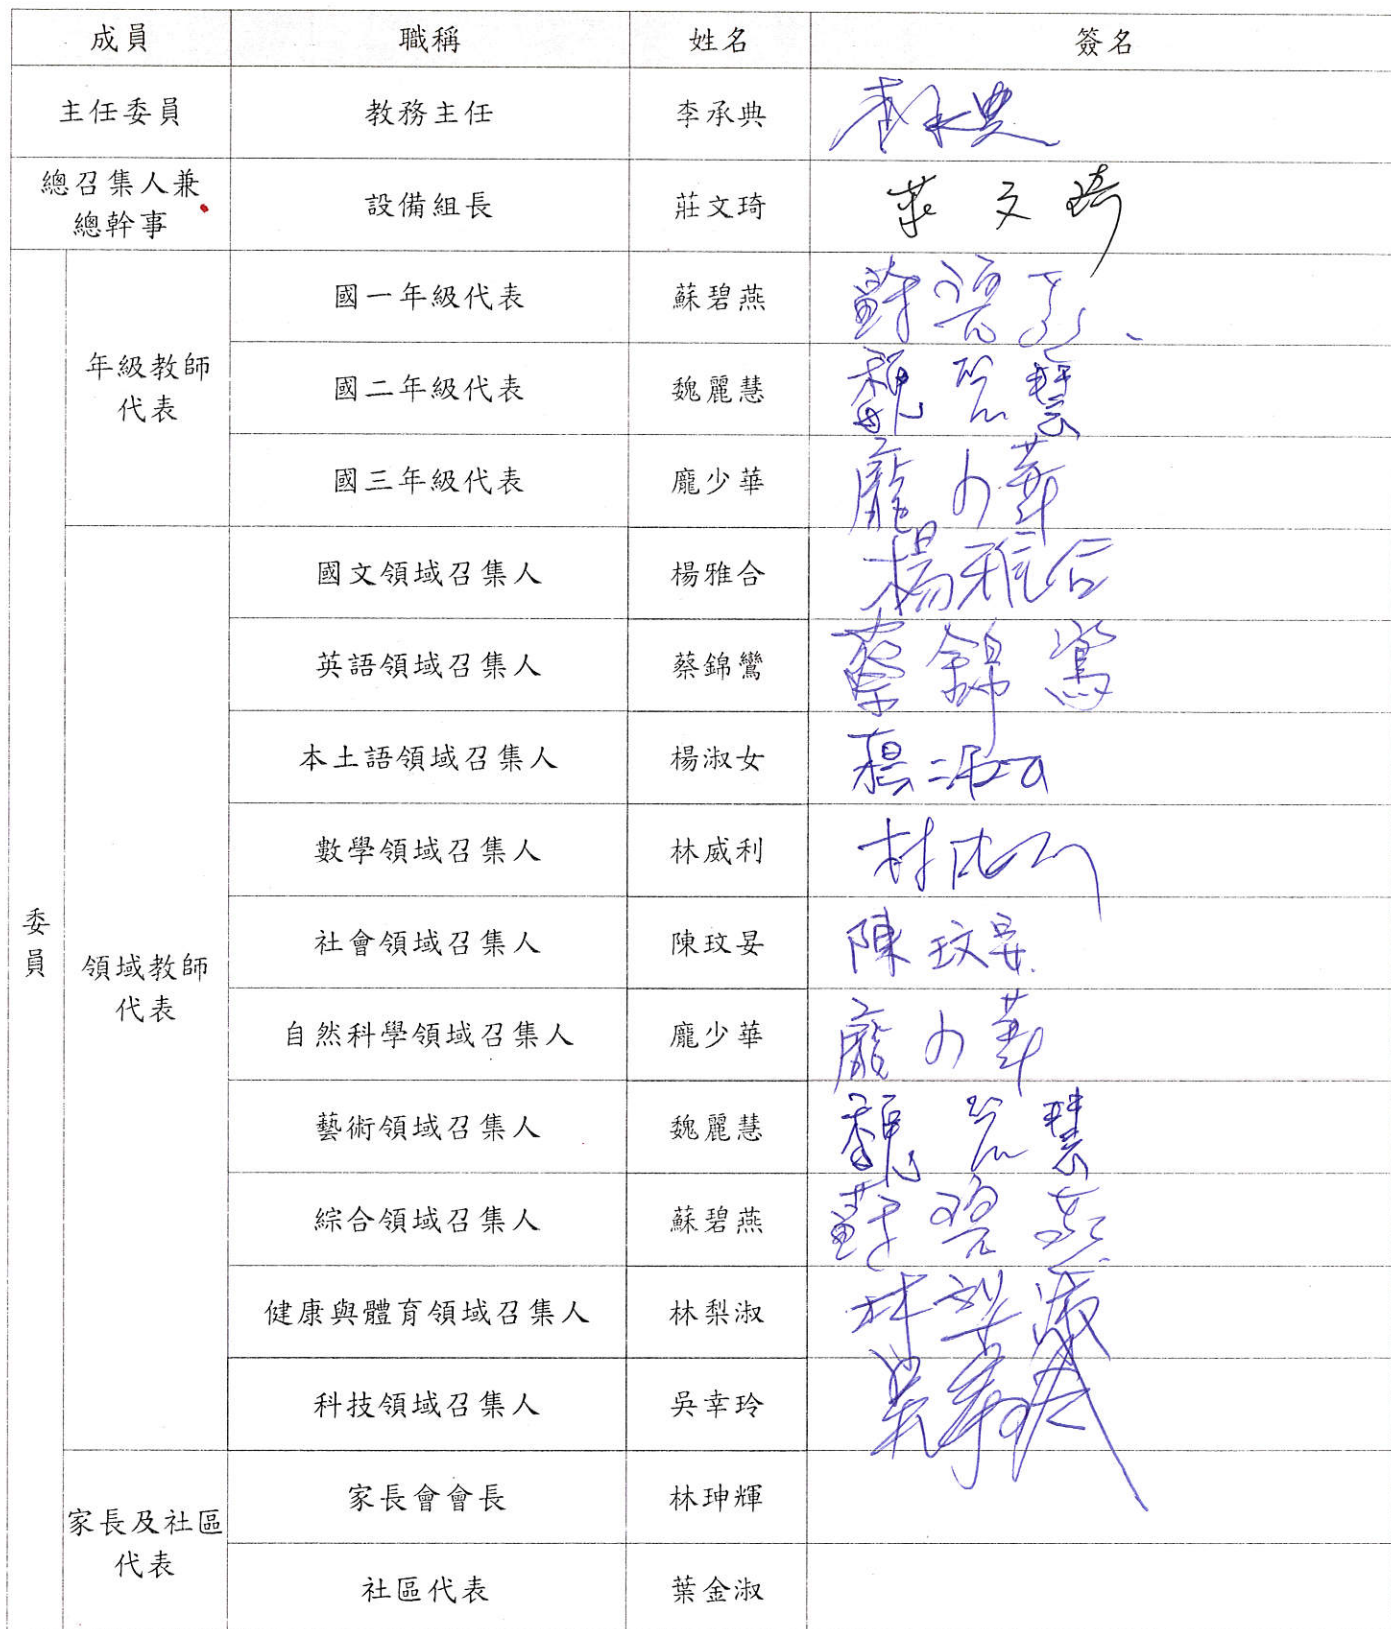 成員 職稱 姓名 簽名
主任委員 教務主任 李承典 李承典
總召集人兼
總幹事 設備組長 莊文琦 莊文琦
國一年級代表 蘇碧燕 蘇碧燕
年級教師
代表 國二年級代表 魏麗慧 魏麗慧
國三年級代表 龐少華 龐少華
國文領域召集人 楊雅合 楊雅合
英語領域召集人 蔡錦鸞 蔡錦鸞
本土語領域召集人 楊淑女 楊淑女
數學領域召集人 林威利 林威利
委員
領域教師
代表
社會領域召集人 陳玟妟 陳玟妟
自然科學領域召集人 龐少華 龐少華
藝術領域召集人 魏麗慧 魏麗慧
綜合領域召集人 蘇碧燕 蘇碧燕
健康與體育領域召集人 林梨淑 林梨淑
科技領域召集人 吳幸玲 吳幸玲
家長及社區
代表
家長會會長 林珅輝
社區代表 葉金淑